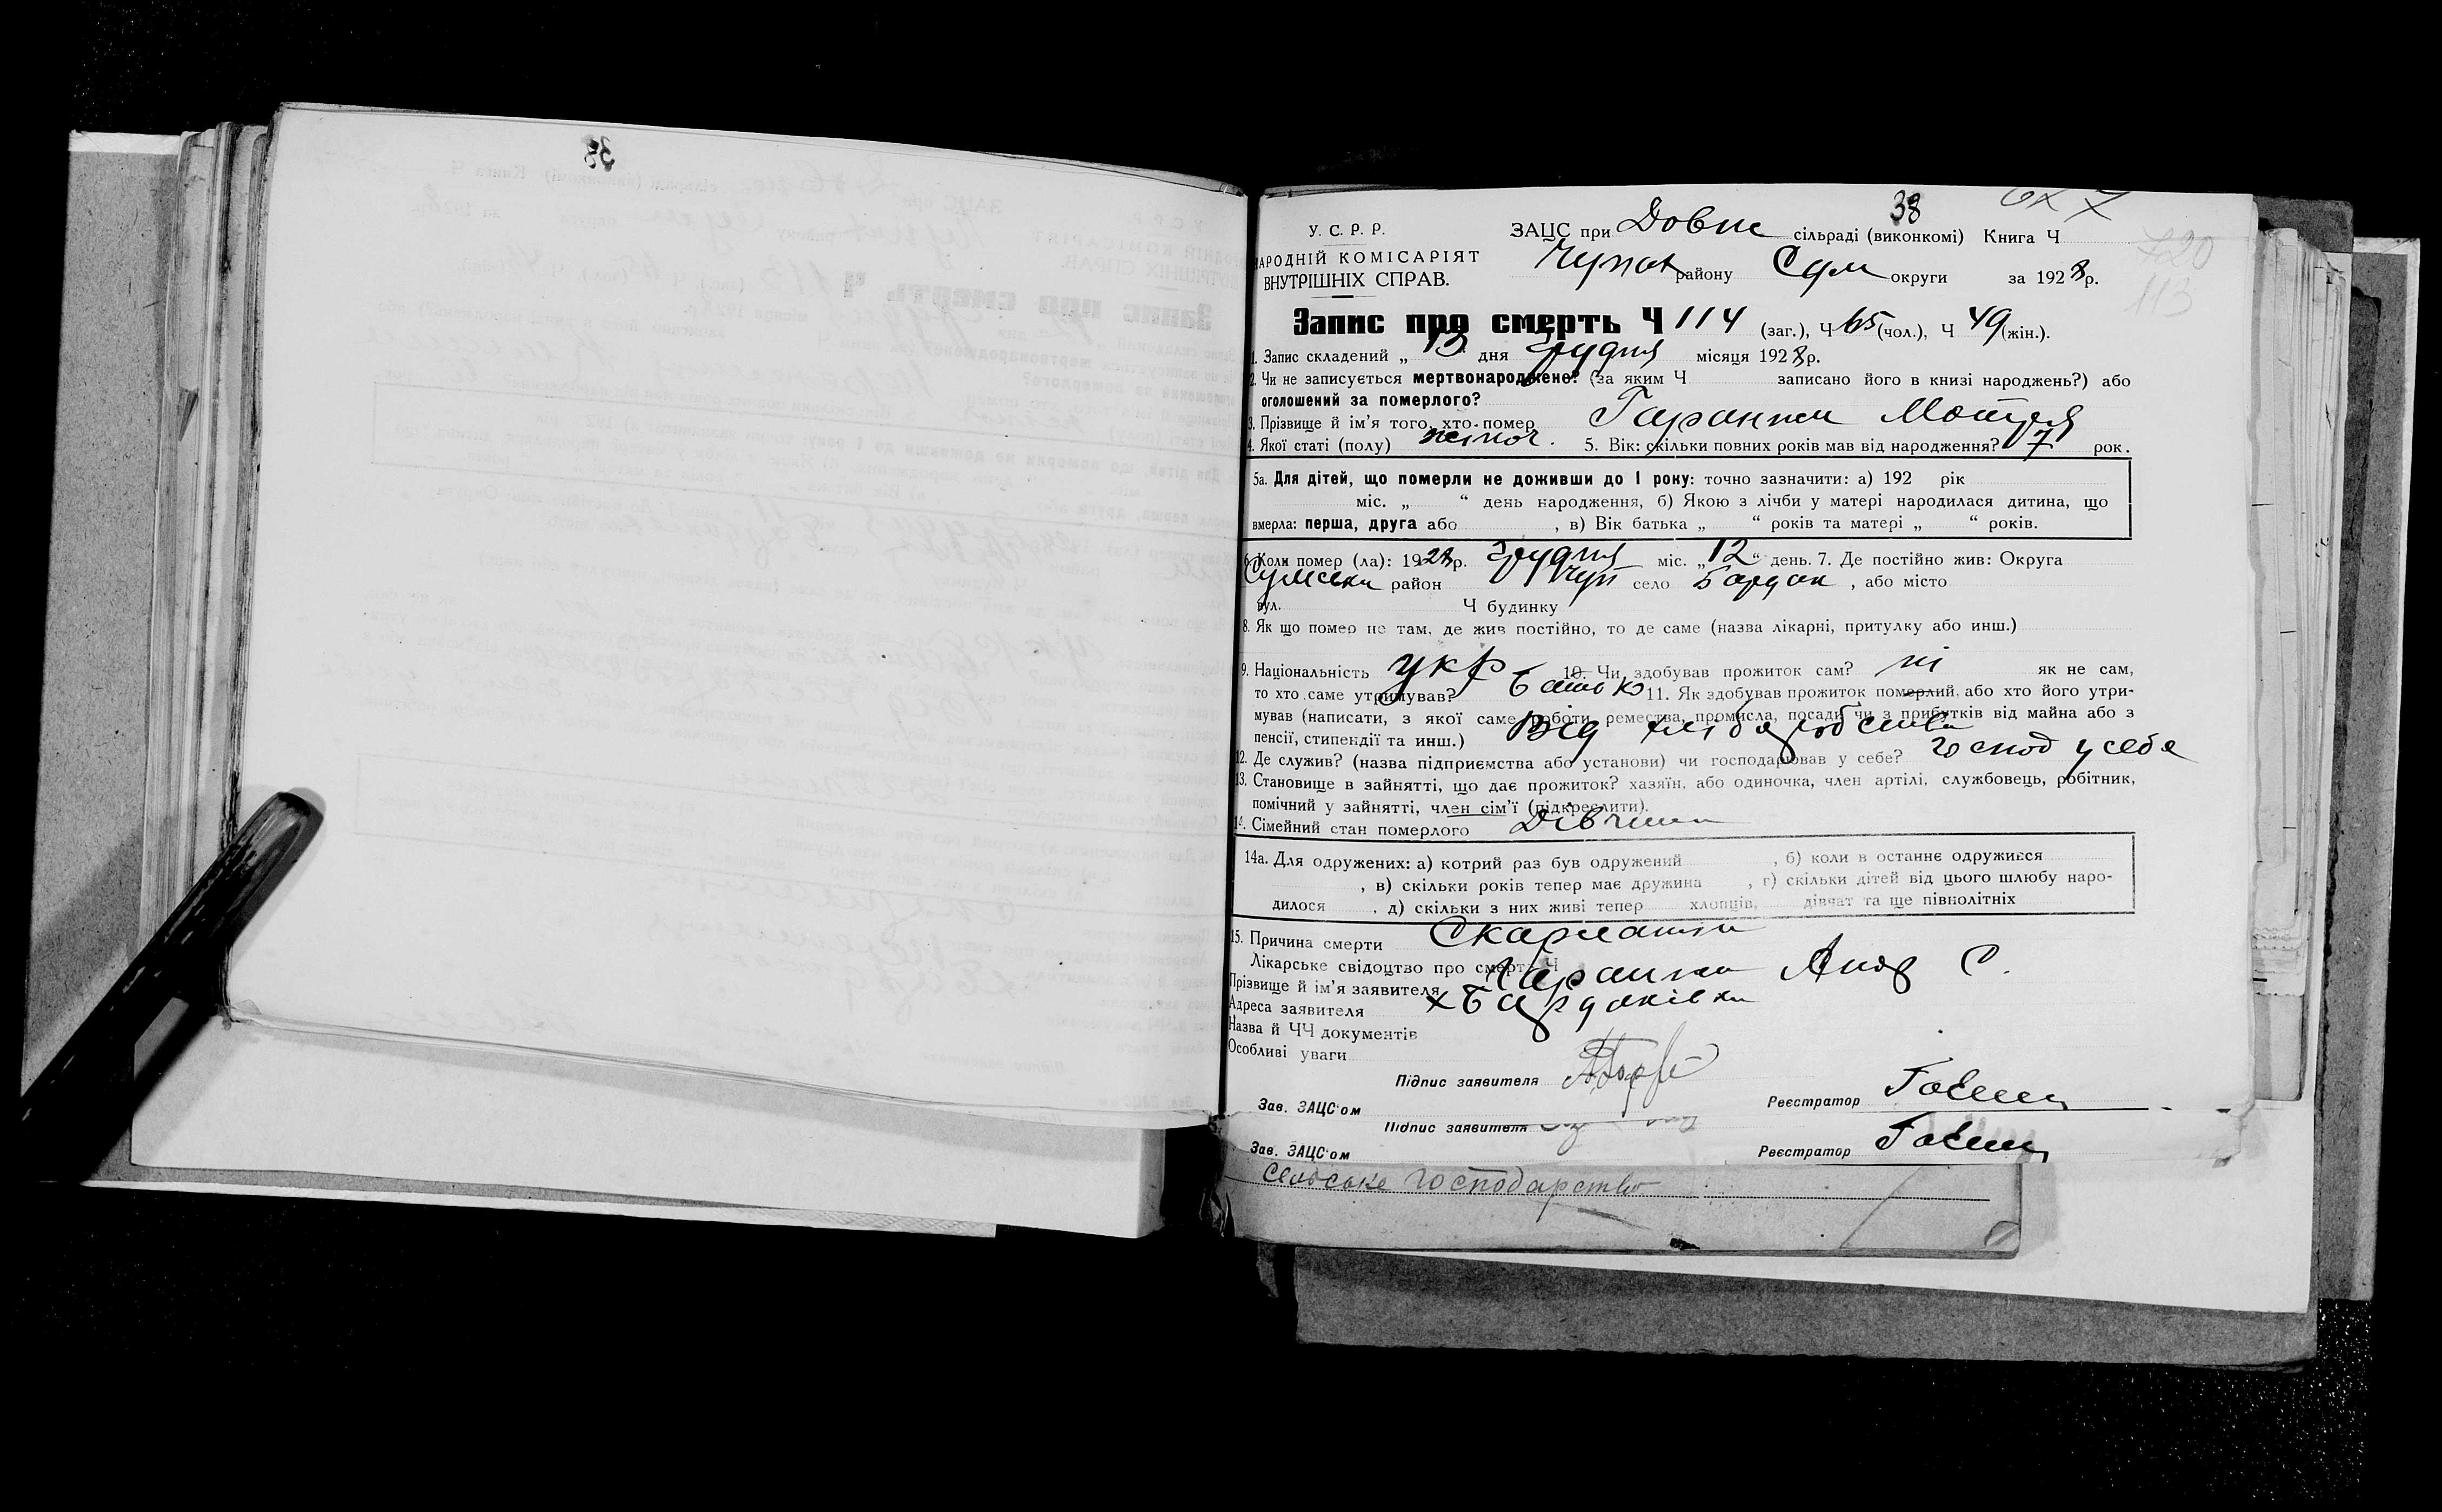 38
38
У. С. Р. Р.
НАРОДНІЙ КОМІСАРІЯТ
ВНУТРІШНІХ СПРАВ.
ЗАЦС при Довж сільраді (виконкомі) Книга Ч
Чупах району Сум округи за 1928 р.
720
113
Запис про смерть Ч 114 (заг.), Ч 65 (чол.), Ч 49 (жін.).
1. Запис складений „ 13 дня Грудня місяця 1928 р.
2. Чи не записується мертвонароджено? (за яким Ч записано його в книзі народжень?) або
оголошений за померлого?
3. Прізвище й ім'я того, хто помер Гаранжа Мотря
4. Якої статі (полу) жіноч. 5. Вік: скільки повних років мав від народження? 7 рок.
5а. Для дітей, що померли не доживши до 1 року: точно зазначити: а) 192 рік
міс. „ “ день народження, б) Якою з лічби у матері народилася дитина, що
вмерла: перша, друга або , в) Вік батька „ “ років та матері „ “ років.
6. Коли помер (ла): 1928 р. Грудня міс. „12“ день. 7. Де постійно жив: Округа
Сумська район Чуп село Бардак , або місто
вул. Ч будинку
8. Як що помер не там, де жив постійно, то де саме (назва лікарні, притулку або инш.)
9. Національність укр 10. Чи здобував прожиток сам? ні як не сам,
то хто саме утримував? батько 11. Як здобував прожиток померлий, або хто його утри-
мував (написати, з якої саме роботи, ремества, промисла, посади чи з прибутків від майна або з
пенсії, стипендії та инш.) Від хлібаробства
12. Де служив? (назва підприємства або установи) чи господарював у себе? господ у себе
13. Становище в зайнятті, що дає прожиток? хазяїн, або одиночка, член артілі, службовець, робітник,
помічний у зайнятті, член сім'ї (підкреслити).
14. Сімейний стан померлого Дівчина
14а. Для одружених: а) котрий раз був одружений , б) коли в останнє одружився
, в) скільки років тепер має дружина , г) скільки дітей від цього шлюбу наро-
дилося , д) скільки з них живі тепер хлопців, дівчат та ще півнолітніх
15. Причина смерти Скарлатина
Лікарське свідоцтво про смерть Ч
Прізвище й ім'я заявителя Гаранжа Яков С.
Адреса заявителя х Бардаківка
Назва й ЧЧ документів
Особливі уваги
Підпис заявителя
Зав. ЗАЦС'ом Реєстратор
Підпис заявителя
Зав. ЗАЦС'ом Реєстратор
Сельське господарство